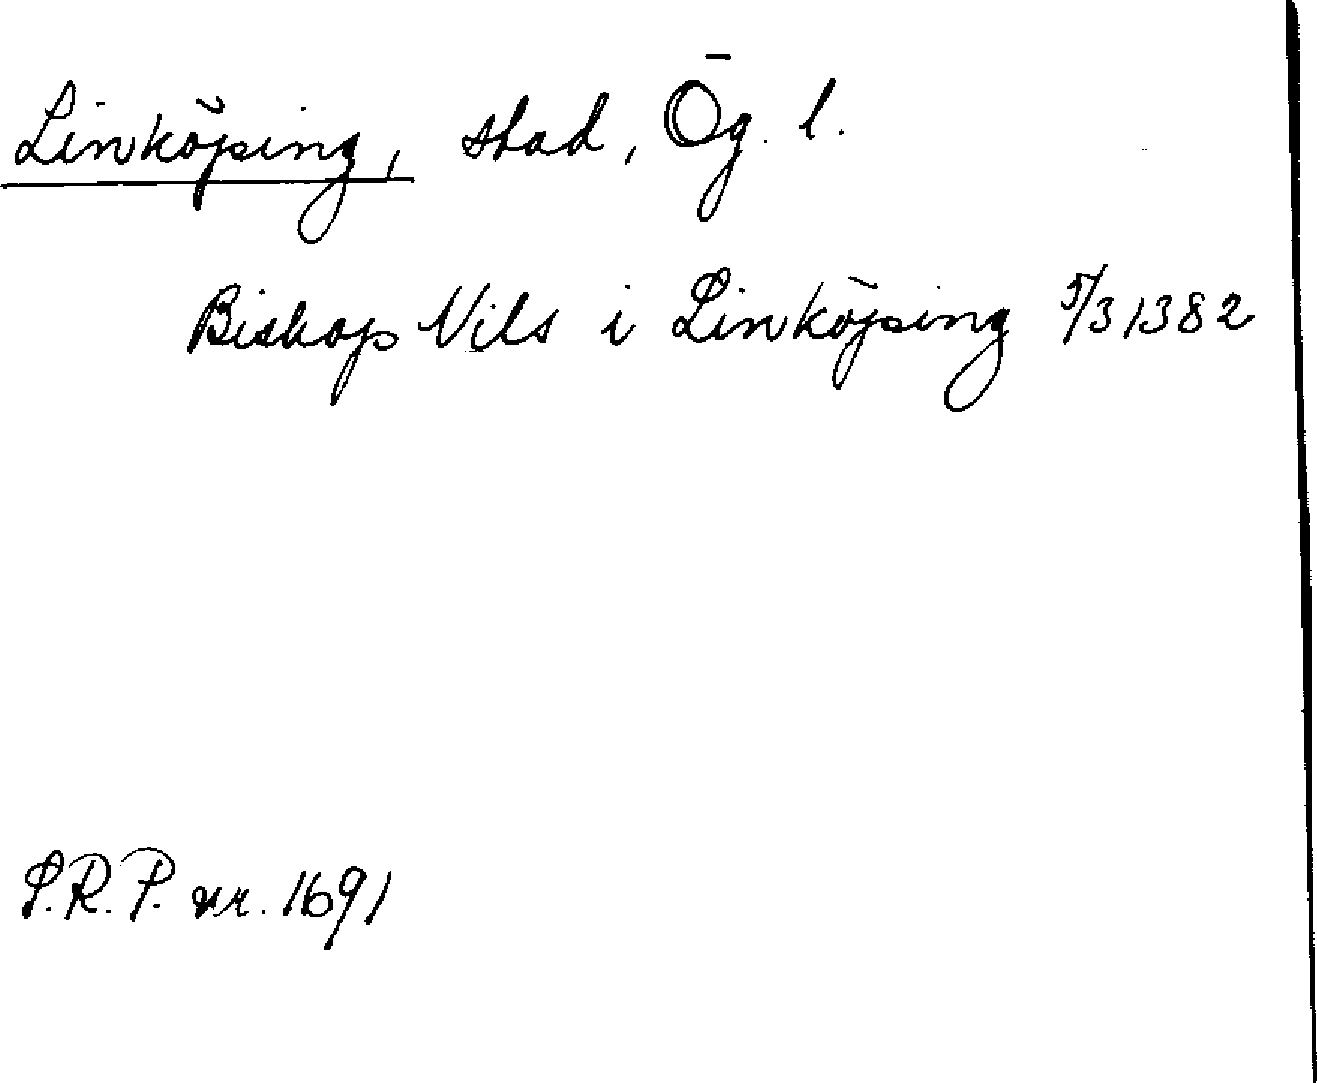 Linköping, stad, Ög. l.
Biskop Nils i Linköping 5/3 1382
S.R.P. nr. 1691